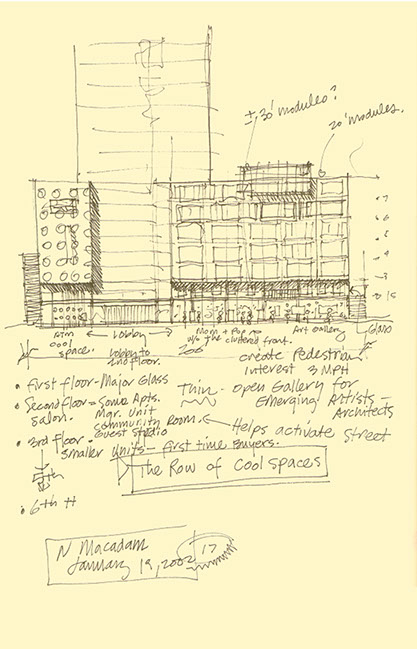 ± 30' modules?
20' modules.
cool space.
Lobby
Lobby to 2nd floor.
Mom + Pop
w/o the cluttered front.
Art Gallery
Glass
create Pedestrian
interest 3 MPH
• First floor - Major Glass
Thin - open Gallery for
Emerging Artists -
Architects
• Second floor = Some Apts.
Salon. Mgr. Unit
community Room. Helps activate Street
Guest Studio
• 3rd Floor -
smaller units - first time Buyers.
The Row of Cool spaces
• 6th
N Macadam
January 19, 2002
17